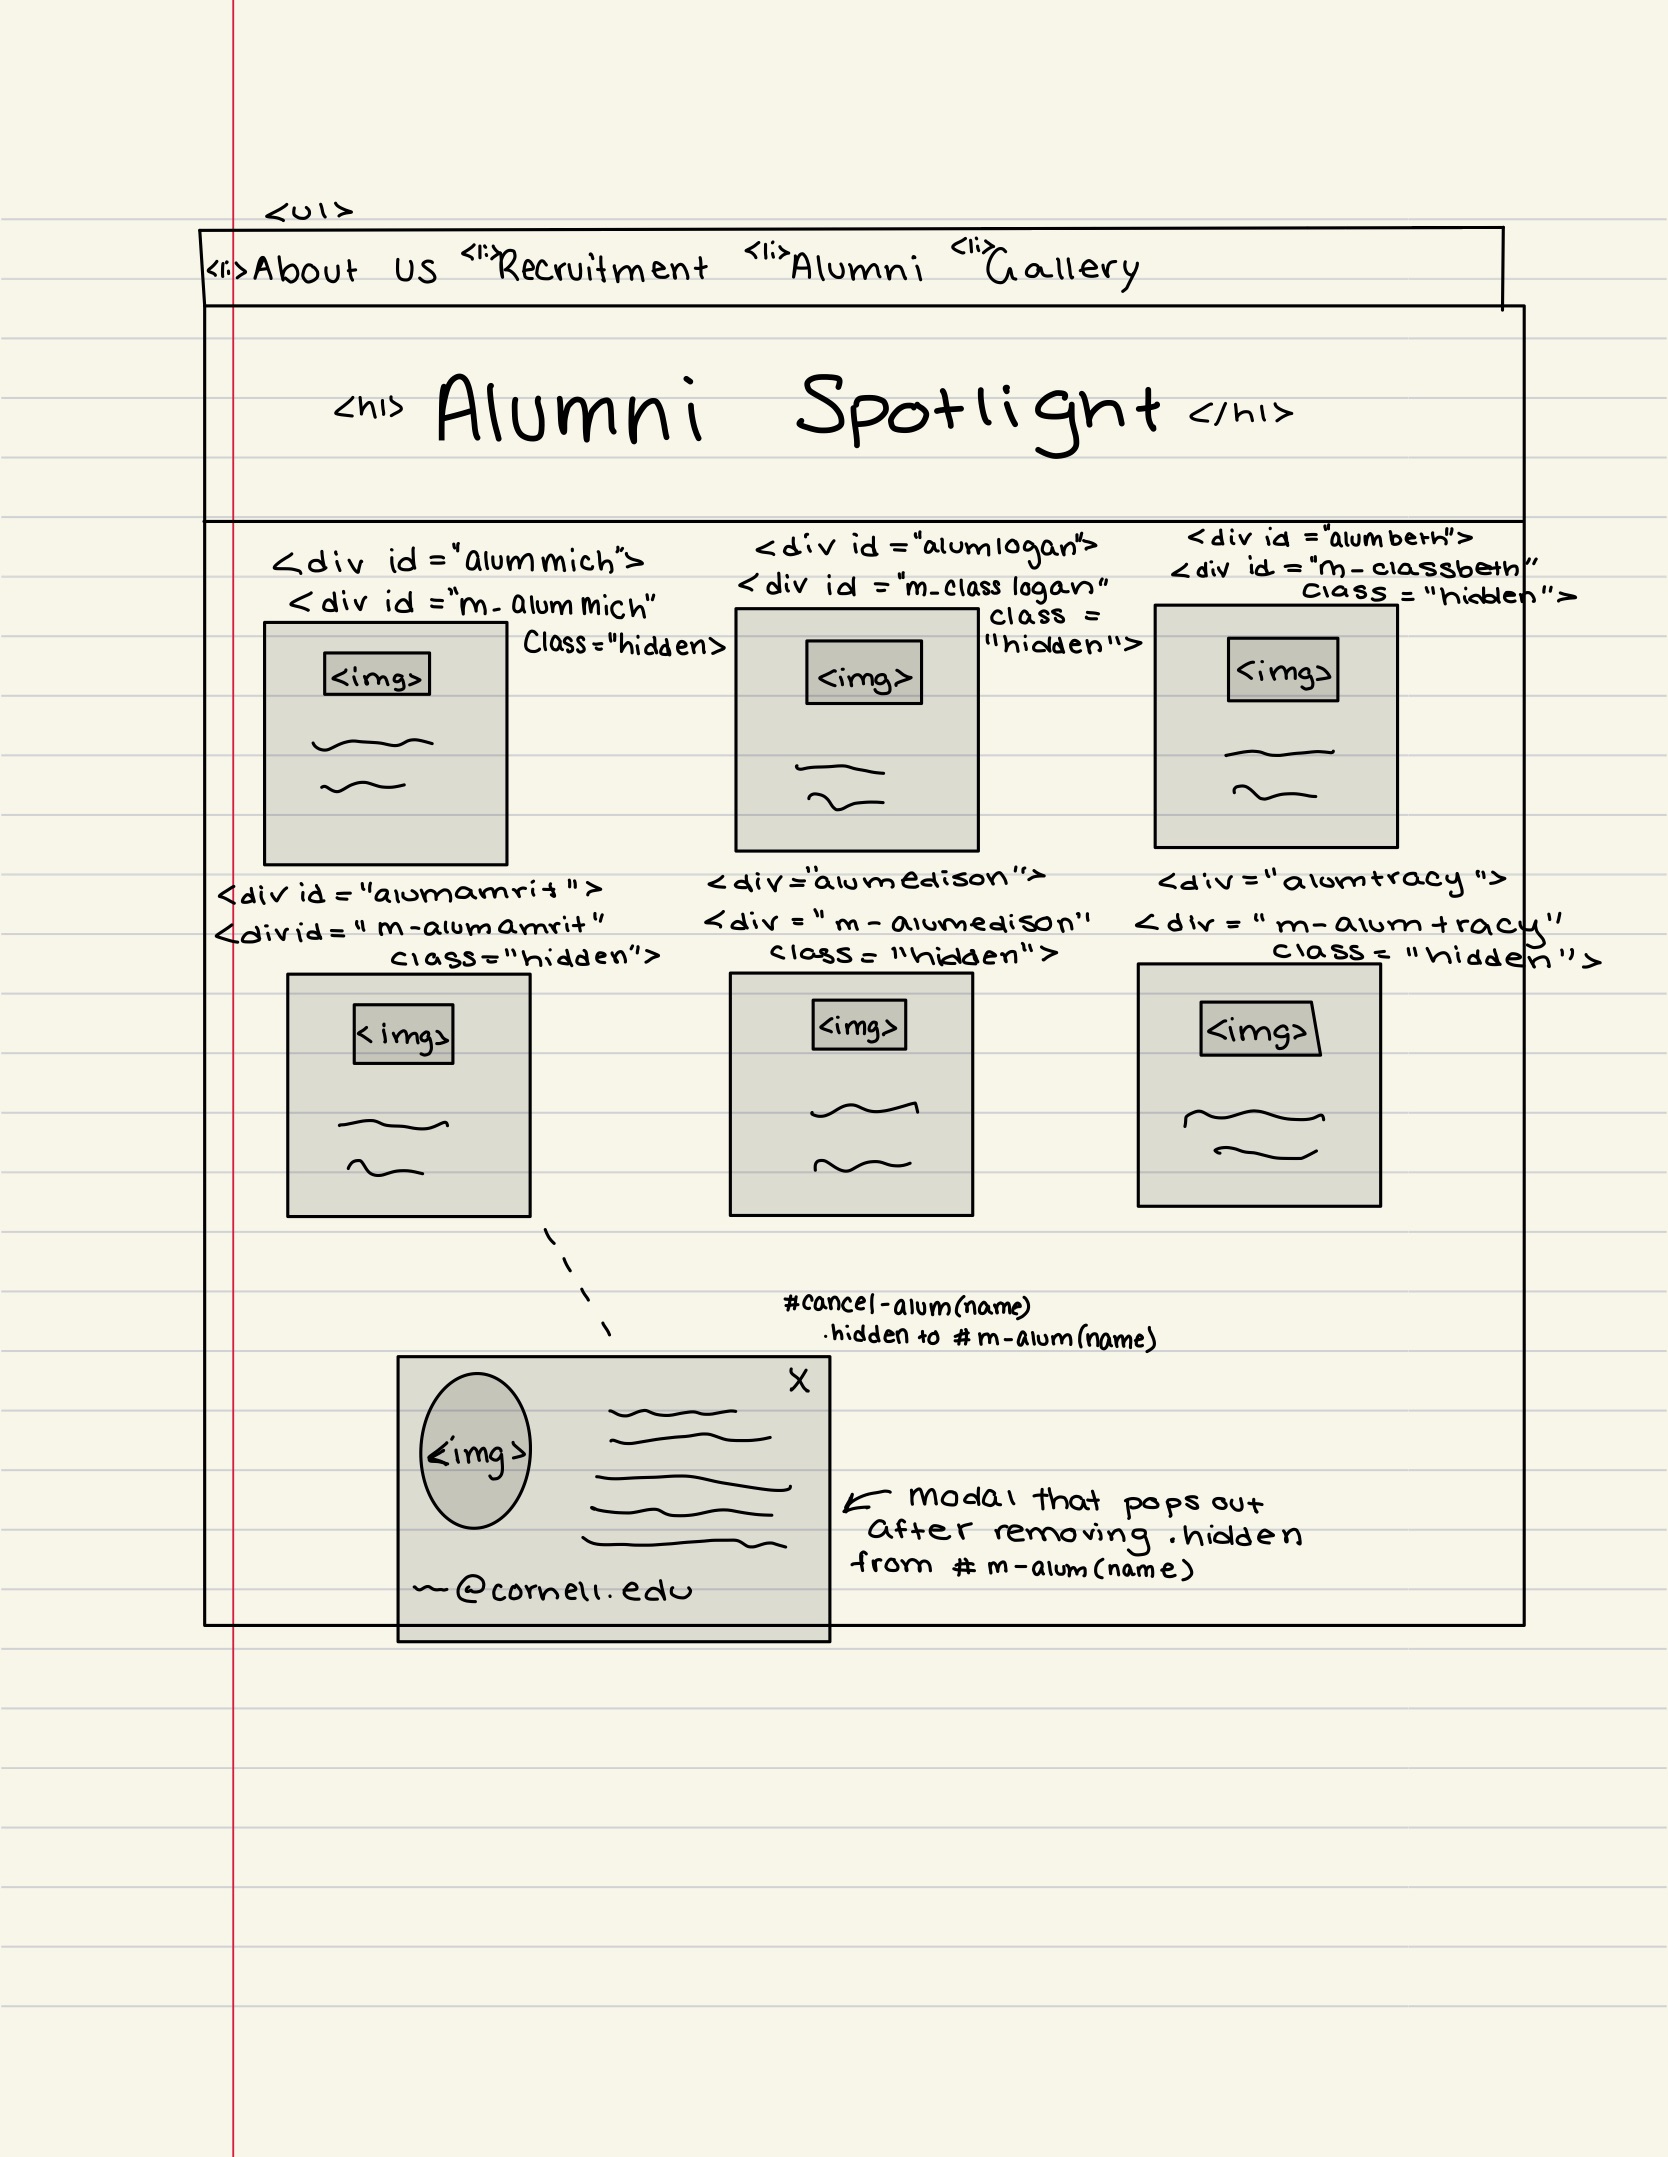 <ul>
<li>About us <li>Recruitment <li>Alumni <li>Gallery
<h1> Alumni Spotlight </h1>
<div id="alummich">
<div id="m-alummich"
Class="hidden>
<img>
<div id="alumlogan">
<div id="m-classlogan"
class =
"hidden">
<img>
<div id="alumbeth">
<div id="m-classbeth"
class="hidden">
<img>
<div id="alumamrit">
<div id="m-alumamrit"
class="hidden">
<img>
<div="alumedison">
<div="m-alumedison"
class="hidden">
<img>
<div="alumtracy">
<div="m-alumtracy"
class="hidden">
<img>
#cancel-alum(name)
.hidden to #m-alum(name)
X
<img>
@cornell.edu
modal that pops out
after removing .hidden
from #m-alum(name)